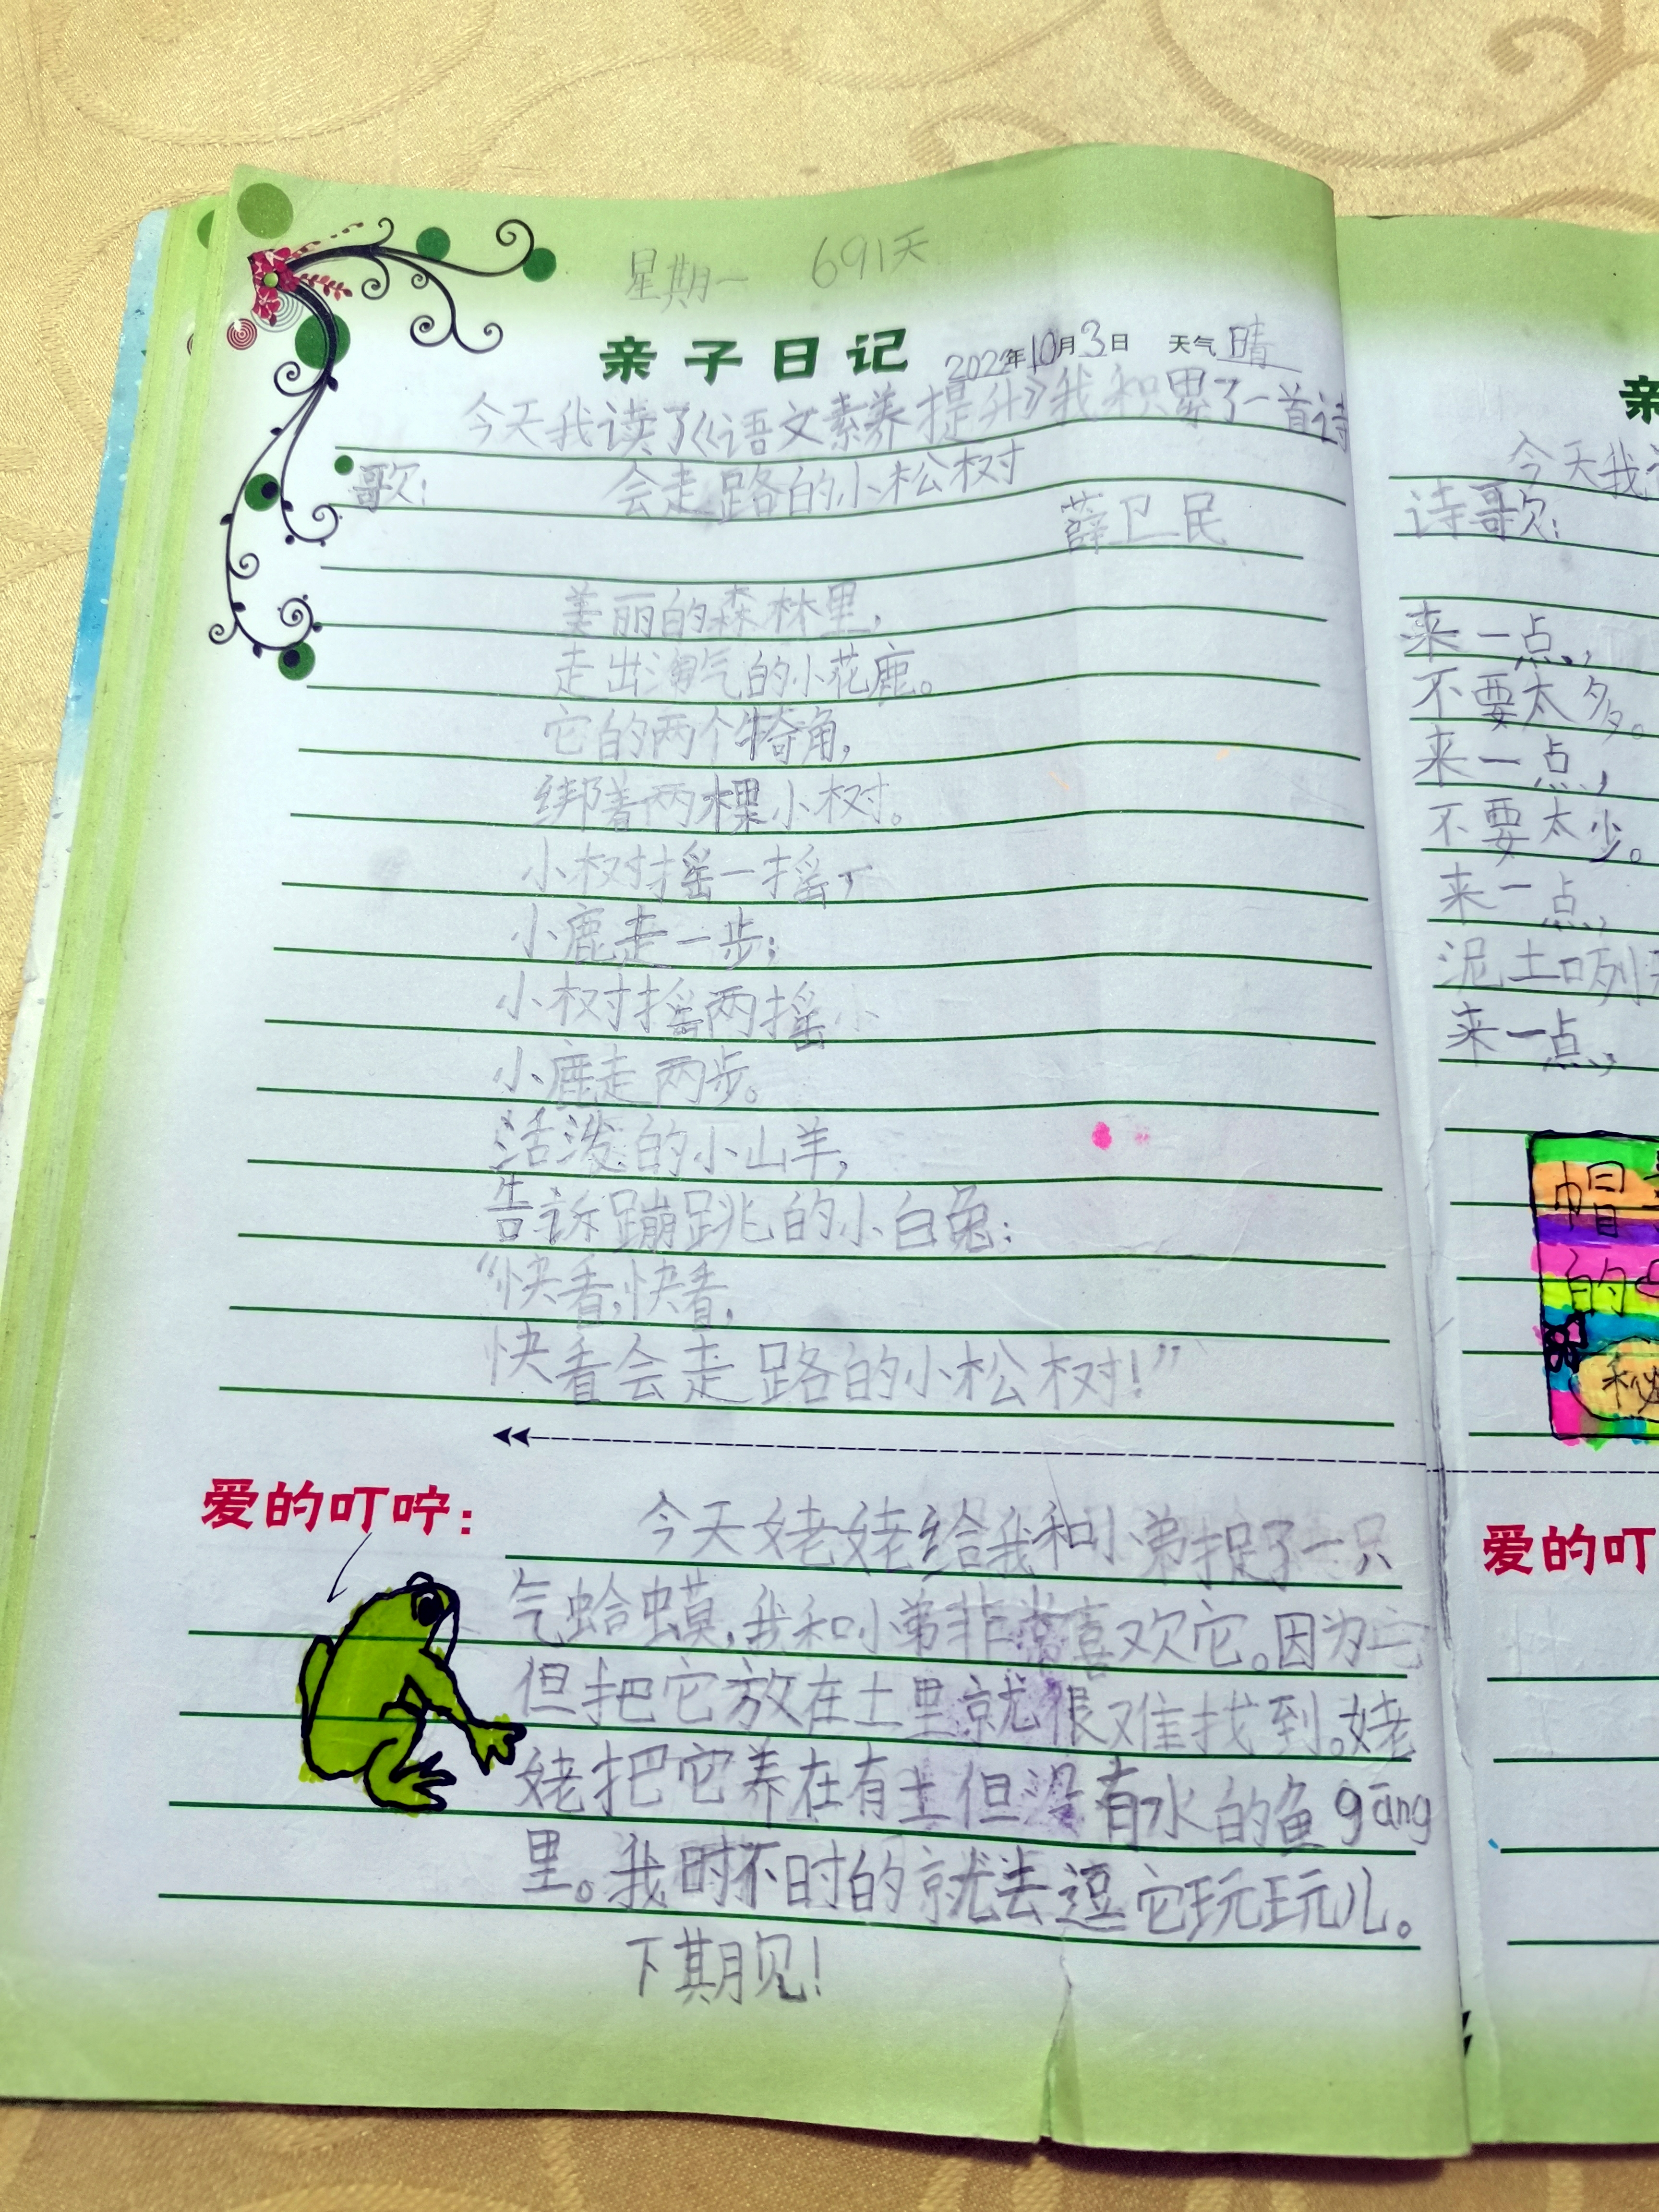 星期一 691天
亲子日记 2022年10月3日 天气 晴
今天我读了《语文素养提升》我积累了一首诗
歌: 会走路的小松树
薛卫民
美丽的森林里,
走出淘气的小花鹿。
它的两个犄角,
绑着两棵小树。
小树摇一摇,
小鹿走一步;
小树摇两摇
小鹿走两步。
活泼的小山羊,
告诉蹦跳的小白兔:
“快看,快看,
快看会走路的小松树!”
爱的叮咛:
今天姥姥给我和小弟捉了一只
气蛤蟆,我和小弟非常喜欢它。因为
但把它放在土里就很难找到。姥
姥把它养在有土但没有水的鱼gāng
里。我时不时的就去逗它玩玩儿。
下期见!
亲
今天我
诗歌:
来一点,
不要太多。
来一点,
不要太少。
来一点,
泥土咧
来一点,
帽
的
秘
爱的叮